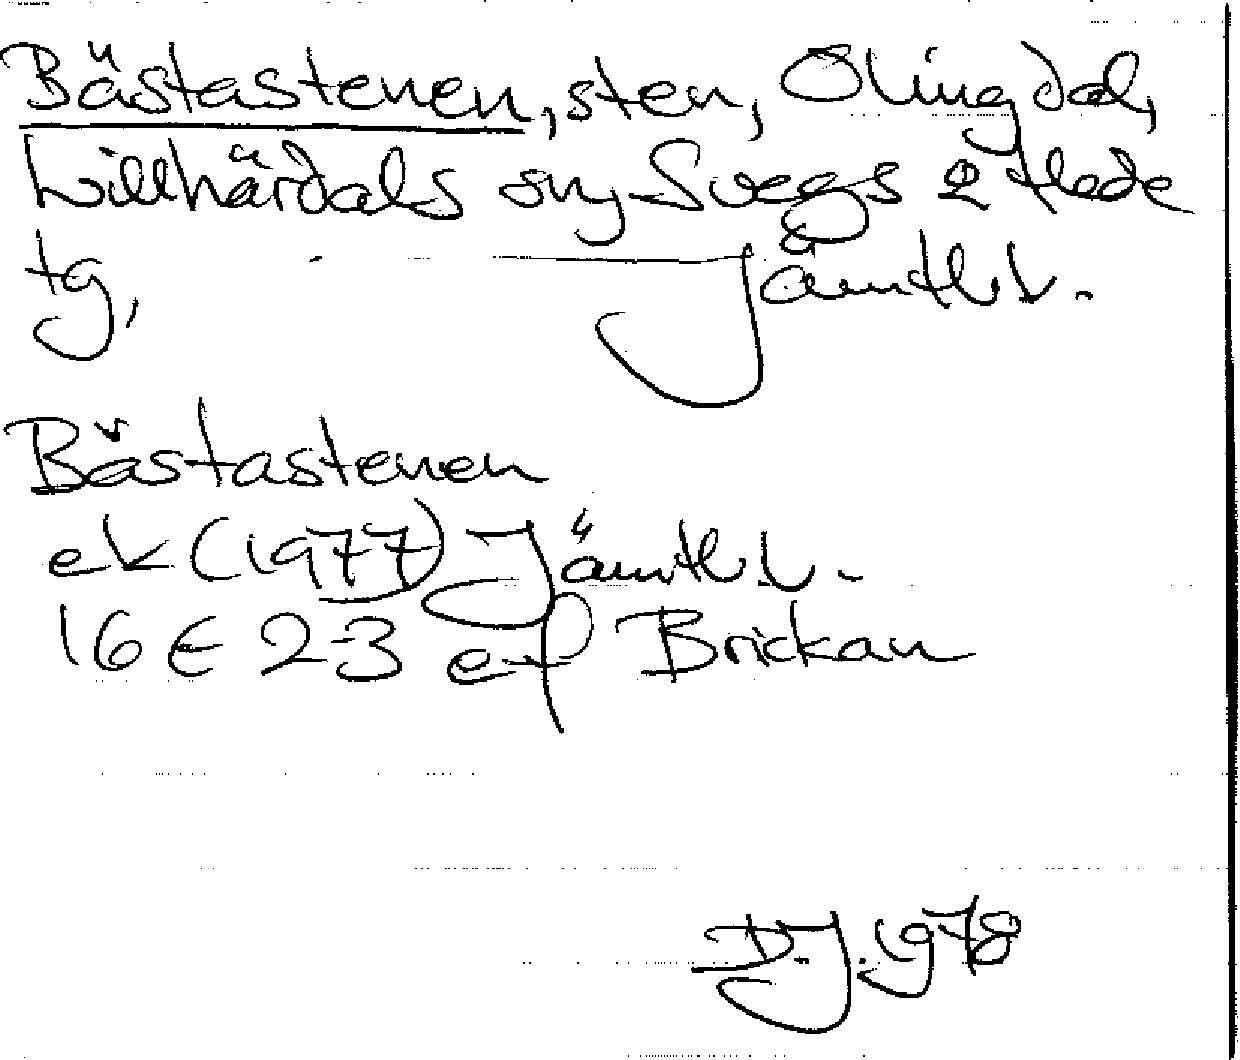 Bästastenen, sten, Olingdal,
Lillhärdals sn, Svegs & Hede
tg, Jämtl. l.
Bästastenen
ek (1977) Jämtl. l.
16 E 2-3 ef Brickan
D.J. 1978